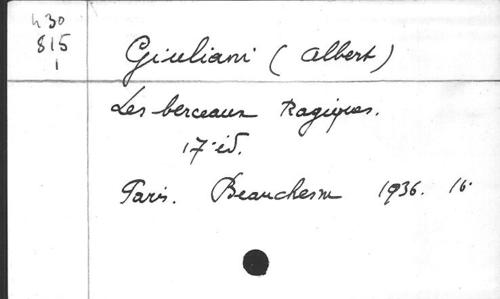 h 30
815
1
Giuliani (Albert)
Les berceaux tragiques.
17e éd.
Paris. Beauchesne 1936. 16°